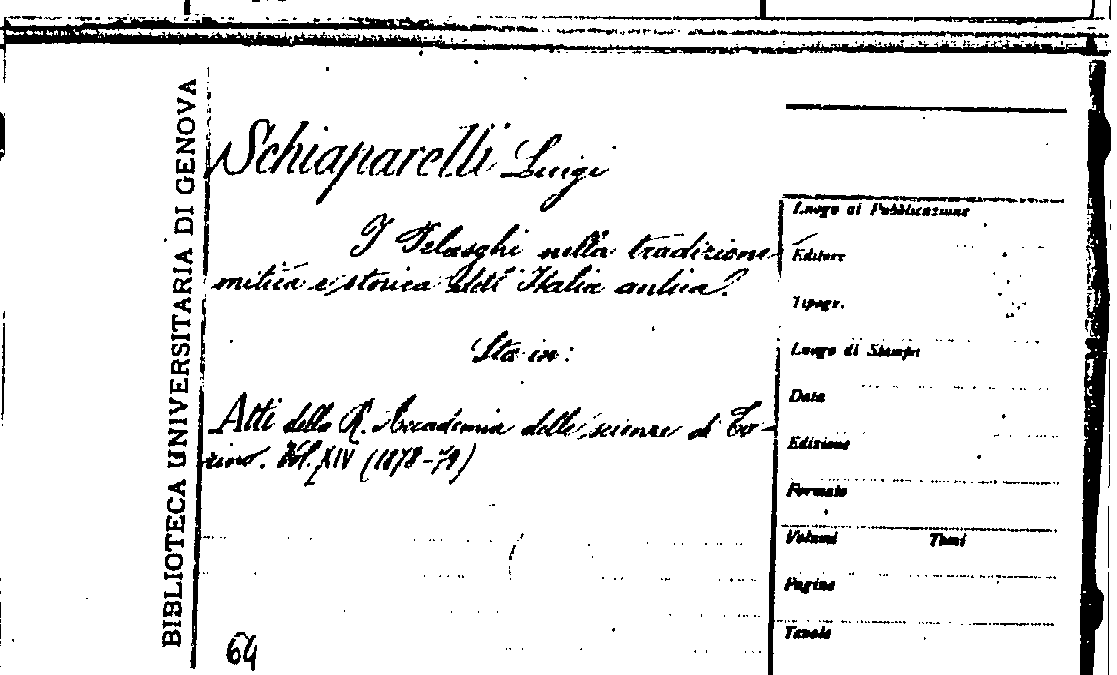 BIBLIOTECA UNIVERSITARIA DI GENOVA
Schiaparelli Luigi
I Pelasghi nella tradizione
mitica e storica dell'Italia antica.
Sta in:
Atti della R. Accademia delle scienze di To-
rino. Vol. XIV (1878-79)
64
Luogo di Pubblicazione
Editore
Tipogr.
Luogo di Stampa
Data
Edizione
Formato
Volumi Tomi
Pagine
Tavole